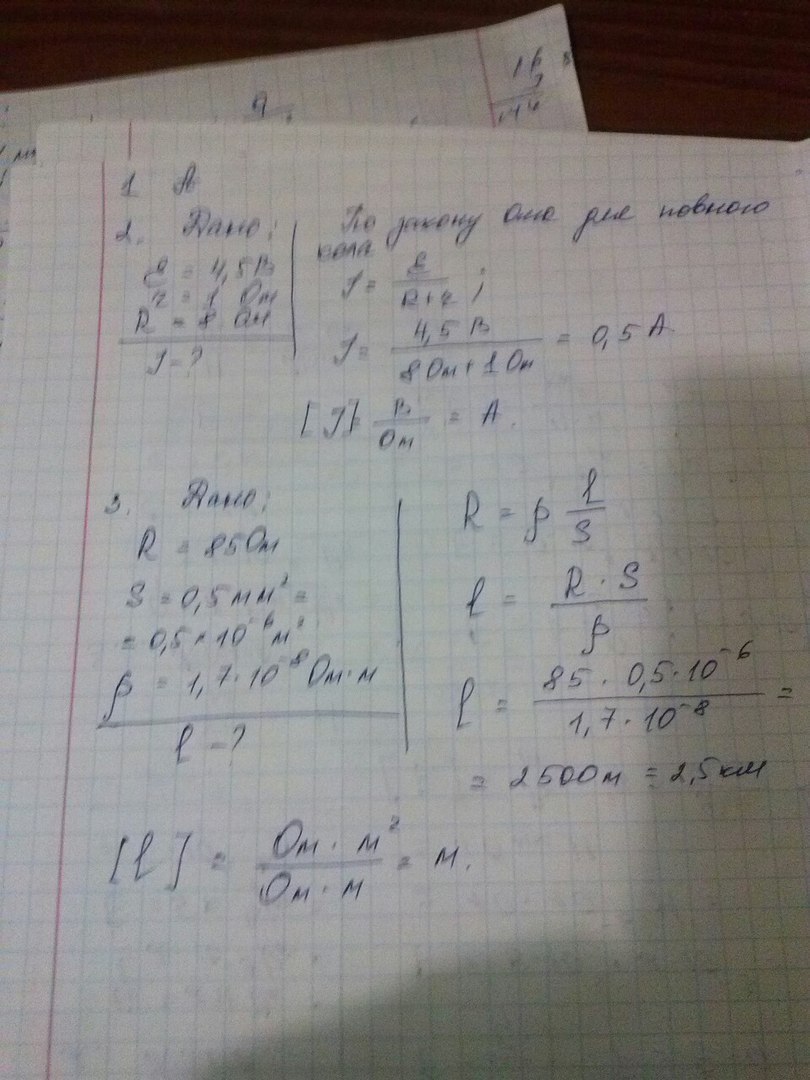 16
9
1 А
2. Дано:
ℰ = 4,5 В
r = 1 Ом
R = 8 Ом
I - ?
По закону Ома для повного
кола
I = ℰ / (R + r) ;
I = 4,5 В / (8 Ом + 1 Ом) = 0,5 А
[I] = В / Ом = А.
3. Дано:
R = 85 Ом
S = 0,5 мм² =
= 0,5 · 10⁻⁶ м²
ρ = 1,7 · 10⁻⁸ Ом·м
l - ?
R = ρ l / S
l = R · S / ρ
l = 85 · 0,5 · 10⁻⁶ / 1,7 · 10⁻⁸ =
= 2500 м = 2,5 км
[l] = Ом · м² / Ом · м = м.